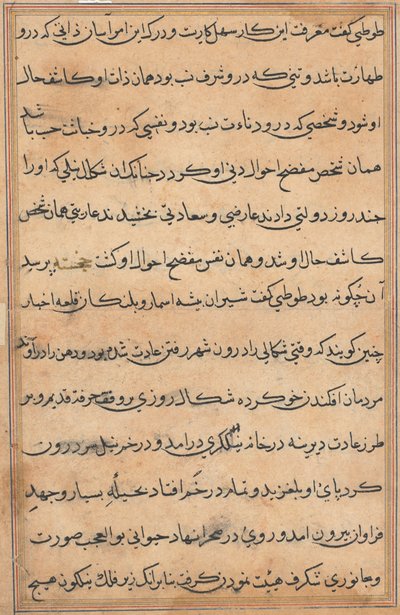 طوطی گفت معرفت این کار سهل کاریست و درک این امر آسان ذاتی که درو
طهارت باشد و تنی که درو شرف نسب بود همان ذات او کاشف حال
او شود و شخصی که درو دناءت نسب بود و نفسی که درو خباثت حسب باشد
همان شخص مفضح احوال دنی او کردد چنانکه ان شکال نیلی که او را
چند روز دولتی دادند عارضی و سعادتی بخشیدند عاریتی همان شخص
کاشف حال او شد و همان نفس مفضح احوال او کشت خجسته پرسید
آن چگونه بود طوطی گفت شیران بیشه اسمار و پلنکان قلعه اخبار
چنین کویند که وقتی شکالی را درون شهر رفتن عادت شده بود و دهن را در آوند
مردمان افکندن خو کرده شکال روزی بر وفق حرفة قدیم و بر
طرز عادت دیرینه در خانه نیلکری در امد و در خم نیل سر درون
کرد پای او بلغزید و تمام در خم افتاد بحیلهٔ بسیار و جهد
فراوان بیرون امد و روی در صحرا نهاد حیوانی بوالعجب صورت
و جانوری شکرف هیئت نمودن کرفت بنابرانک زیر فلک نیلکون هیچ